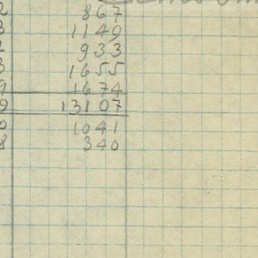 2 867
3 1149
2 933
3 1655
9 1674
9 13107
0 1041
8 340